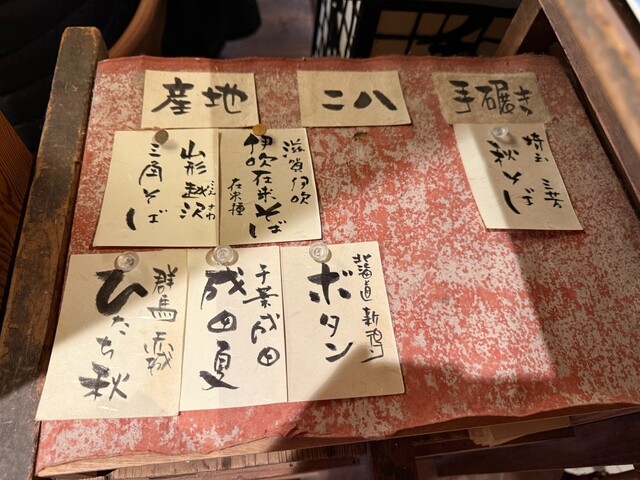 産地
二八
手碾き
山形 越沢
三角そば
滋賀 伊吹
伊吹在来そば
在来種
埼玉 三芳
秋そば
群馬 赤城
ひたち秋
千葉 成田
成田夏
北海道
ボタン